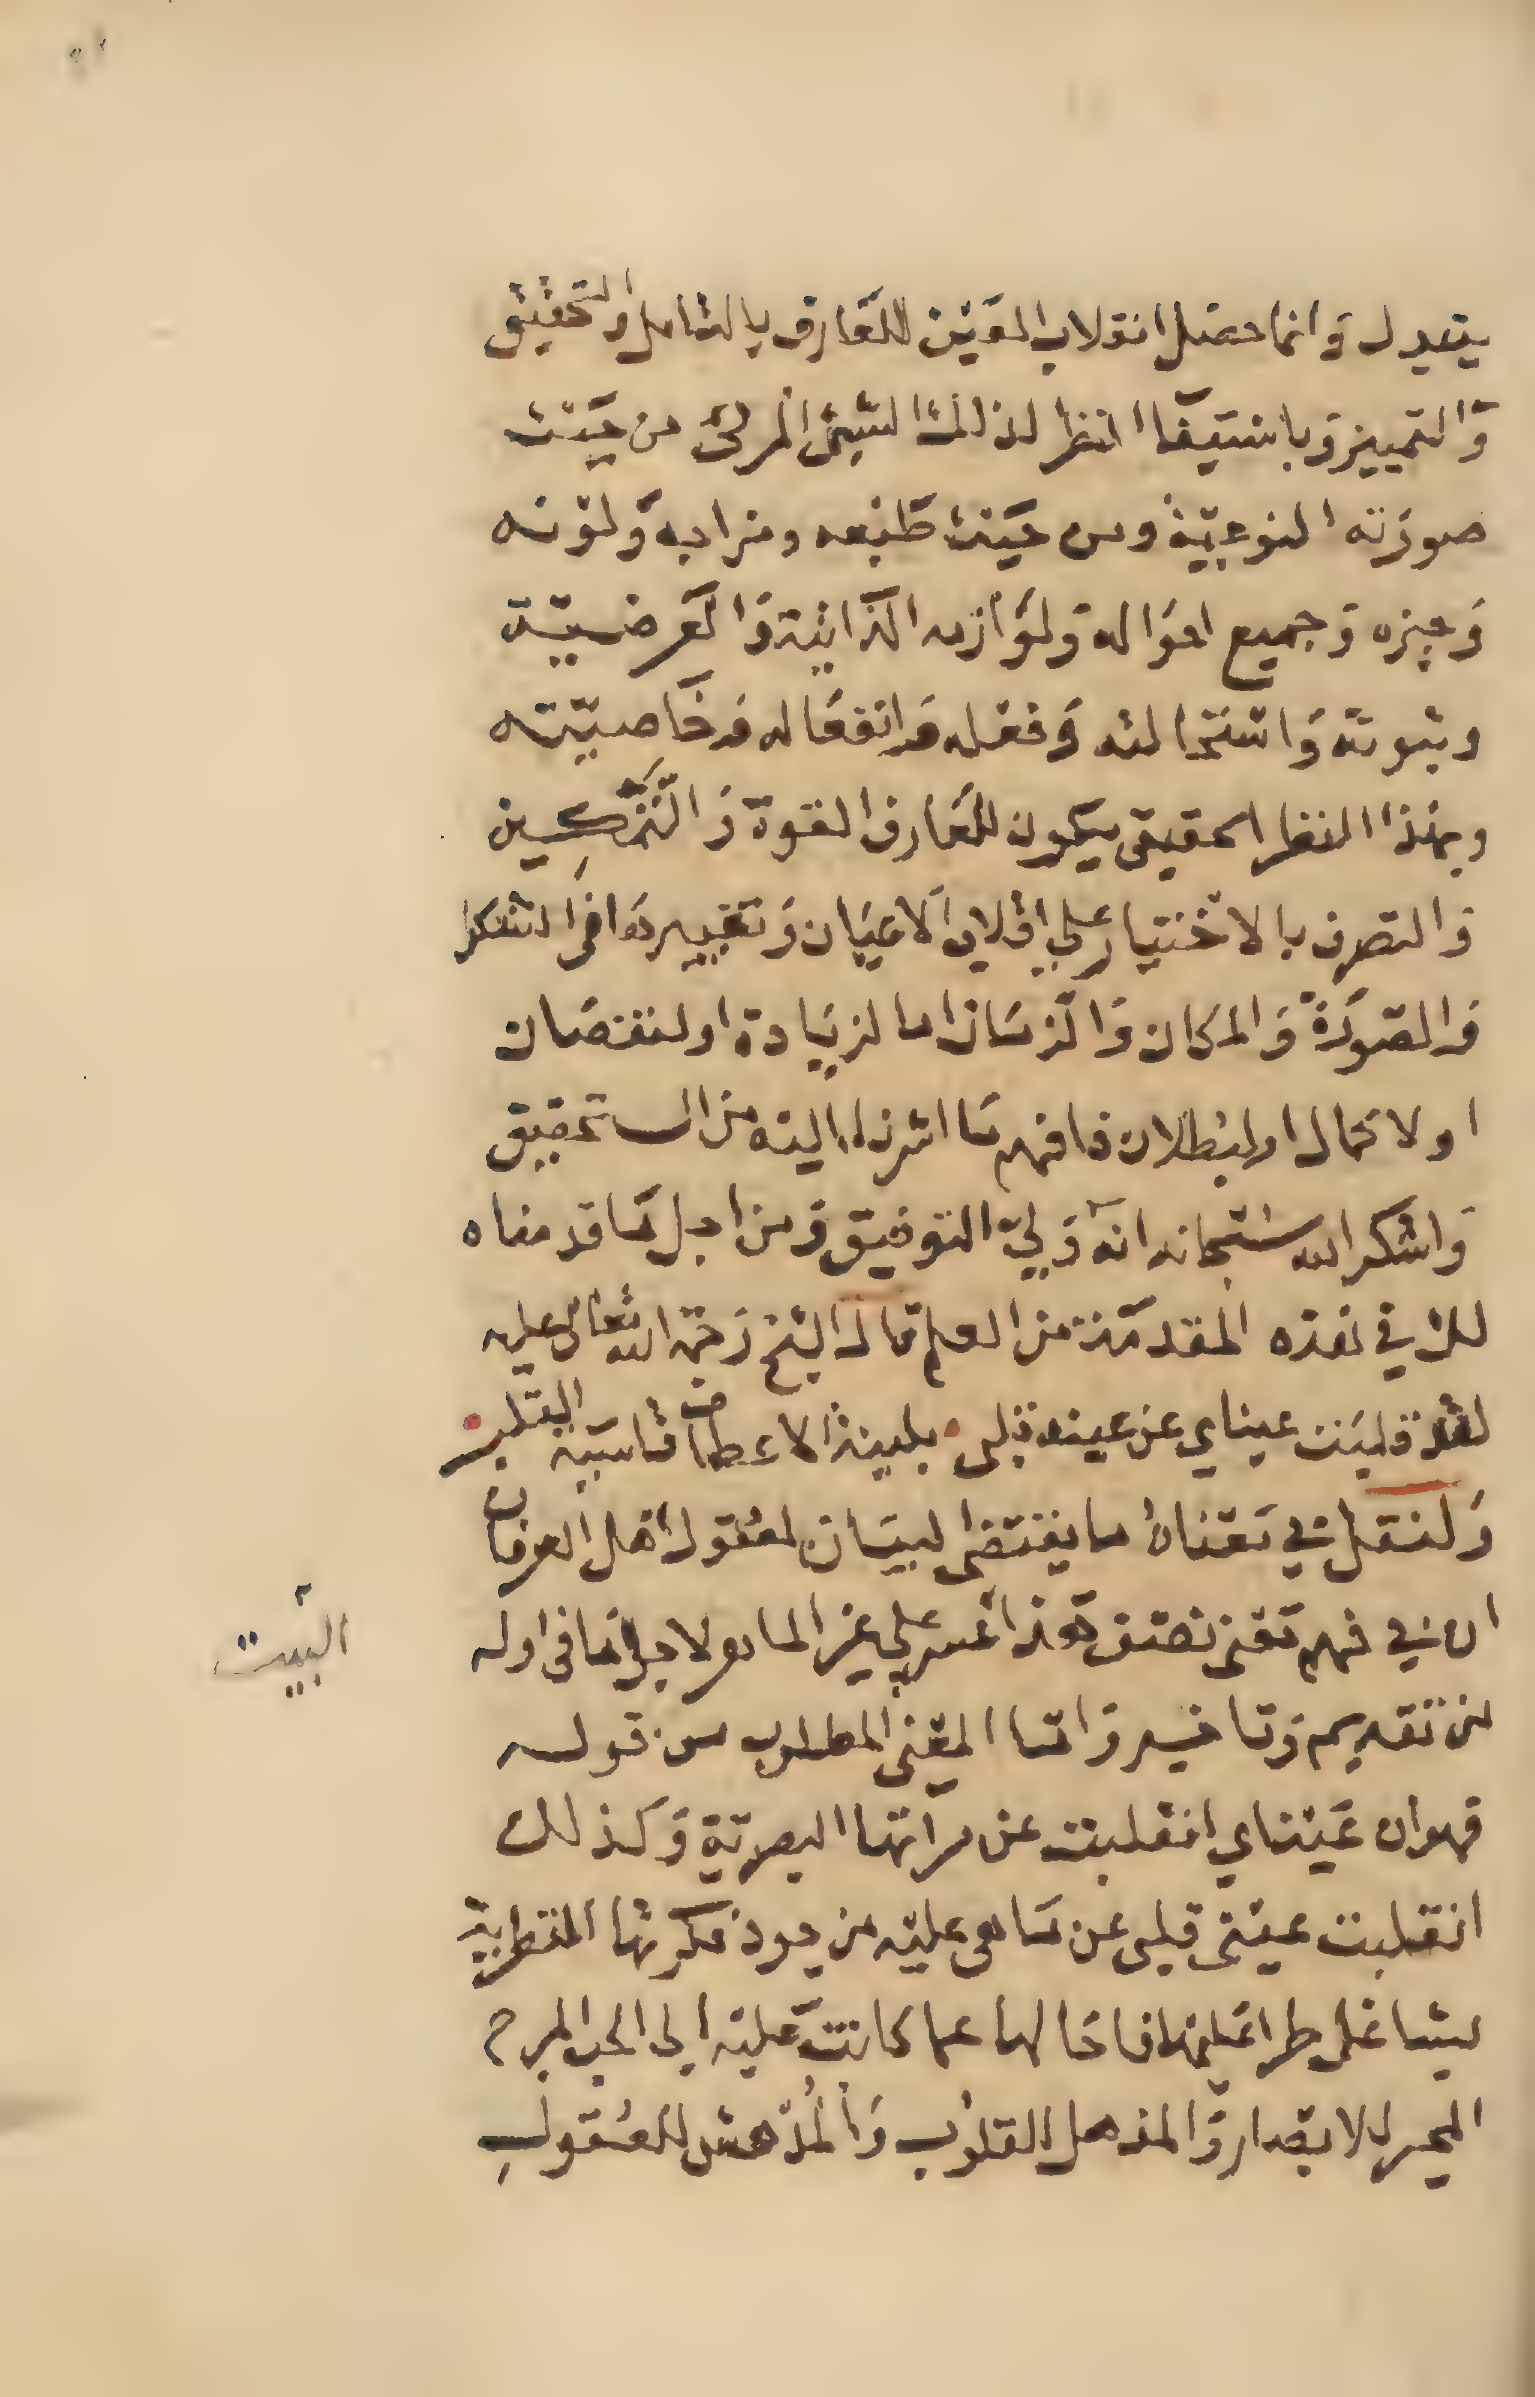 يتعدل وَانما حصَل انقلاب العَيْن للعَارف بالتامل والتحقيق
وَالتمييز وَباستيفَا النظر لذلك الشيْ المرئى من حَيْث
صورَته النوعيّة ومن حَيْث طبْعه ومزاجه وَلوْنه
وَحيزه وَجميع احوَاله وَلوَازمه الذاتية وَالعَرضيّة
وثبوته وَاستحَالته وَفعْله وَانفعَاله وَخَاصيّته
وبهذا النظر الحقيقى يكون للعَارف القوة وَالتمْكِين
وَالتصرف بالاختيار علي اقلاب الاعيَان وَتغيير
وَالصّورَة وَالمكان وَالزمَان اما لزيَادة او لنقصَان
او لاكمال او لبطلان فافهم مَا اشرنا اليْه من التحقيق
وَاشكر الله سبْحَانه انه وَليّ التوفيق وَمن اجل مَا قدمناه
لك في هذه المقدمَة من العلم قال الشيخ رَحمَة الله تعالى عليه
لقد قلبَت عيناي عن عينه قلبى بلينة الاعطاف قاسيَة القلب
وَلنقل في مَعْناهُ ما يقتضى لبيَان لعُقول اهل العرفان
ان في فهم مَعْنى نصْف هَذا عُسر علي غير الماهر لاجل مَا فى اوله
من تقديم وَتاخير وَامّا المعْنى المطلوب من قوله
فهو ان عَيْناي انقلبت عن مرآتها البصرية وَكذلك
انقلبت عيْن قلبى عن مَا هى عليْه من فكرتها النظرية
بشاغل طرا عَليْها فاحَالها عما كانت عَليْه الى الحب المبرح
المحير للابصَار وَالمذهل للقلوب وَالمُدْهش للعُقولِ
البَيت